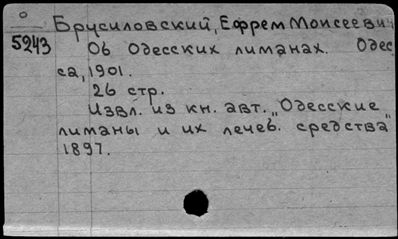 Брусиловский, Ефрем Моисеевич
5243
Об Одесских лиманах. Одес
са, 1901.
26 стр.
Извл. из кн. авт. „Одесские
лиманы и их лечеб. средства"
1897.